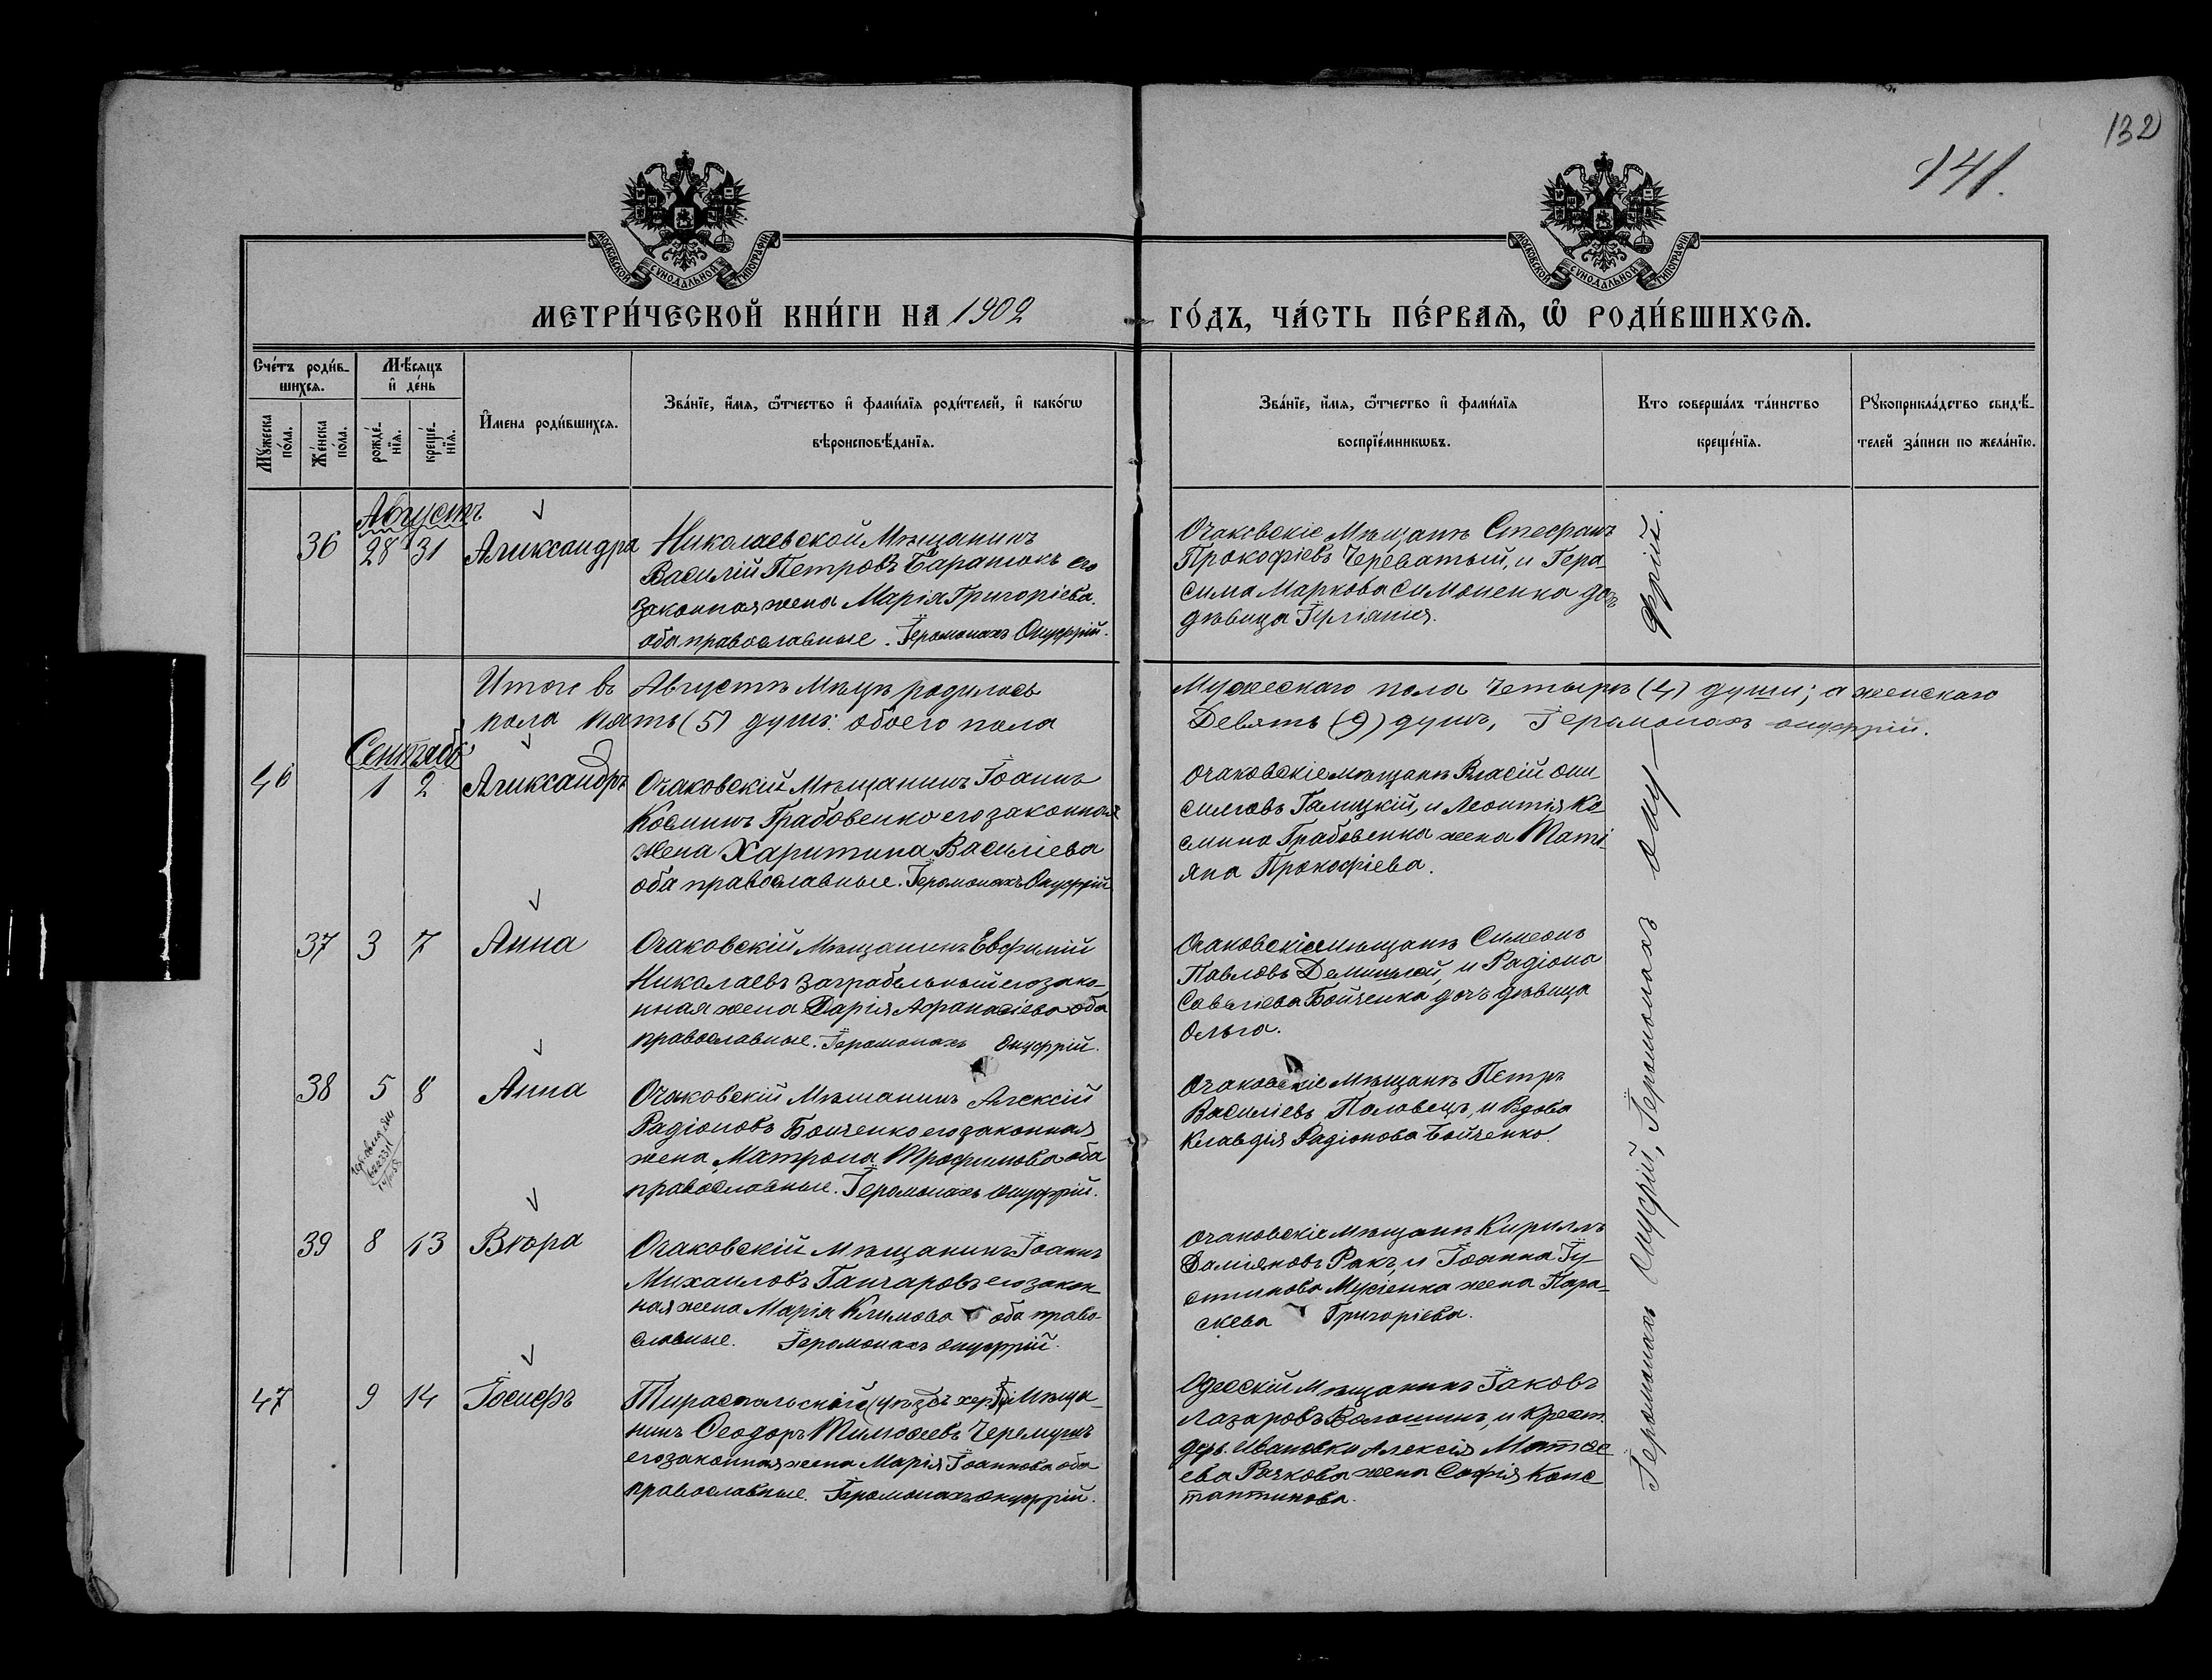 132
141.
МОСКОВСКОЙ СѴНОДАЛЬНОЙ ТИПОГРАФІИ
МОСКОВСКОЙ СѴНОДАЛЬНОЙ ТИПОГРАФІИ
МЕТРИ́ЧЕСКОЙ КНИ́ГИ НА 1902
ГО́ДЪ, ЧА́СТЬ ПЕ́РВАЯ, Ѿ РОДИ́ВШИХСЯ.
Сче́тъ роди́в-
шихся.
Мѣ́сяцъ
и҆ де́нь
Му́жеска
по́ла.
Же́нска
по́ла.
рожде́-
нїя.
креще́-
нїя.
И҆мена роди́вшихся.
Зва́нїе, и҆́мя, ѻ҆́тчество и҆ фами́лїя роди́телей, и҆ како́гѡ
вѣроисповѣ́данїя.
Зва́нїе, и҆́мя, ѻ҆́тчество и҆ фами́лїя
воспрїе́мникѡвъ.
Кто соверша́лъ та́инство
креще́нїя.
Рукоприкла́дство свидѣ́-
телей за́писи по жела́нїю.
Августъ
36 28 31 Александра
Николаевской Мѣщанинъ
Василій Петровъ Баранюкъ его
законная жена Марія Григоріева.
оба православные. Іеромонахъ Онуфрій.
Очаковскіе Мѣщане Стефанъ
Прокофіевъ Череватый, и Гера
сима Маркова Симоненка дочь
дѣвица
Итого въ Августѣ Мѣцѣ родилось
Мужескаго пола Четыре (4) души; а женскаго
пола пять (5) душъ. обоего пола
Девять (9) душъ, Іеромонахъ Онуфрій.
Сентябь
46 1 2 Александръ
Очаковскій Мѣщанинъ Іоаннъ
Косминъ Грабовенко его законная
жена Харитина Василіева
оба православные. Іеромонахъ Онуфрій
Очаковскіе мѣщане Власій Они
симовъ Галицкій, и Леонтія Ко
смина Грабовенка жена Таті-
яна Прокофіева.
37 3 7 Анна
Очаковскій Мѣщанинъ Евфимій
Николаевъ Заграбельный его зако-
нная жена Дарія Афанасіева оба
православные. Іеромонахъ Онуфрій.
Очаковскіе мѣщане Симеонъ
Павловъ и Радіона
Савеліева Бойченка дочь дѣвица
Ольга.
38 5 8 Анна
Очаковскій Мѣщанинъ Алексій
Радіоновъ Бойченко его законная
жена Матрона Трофимова оба
православные. Іеромонахъ Онуфрій.
Очаковскіе Мѣщане Петръ
Василіевъ Половецъ, и Вдова
Клавдія Радіонова Бойченко.
39 8 13 Вѣра
Очаковскій Мѣщанинъ Іоаннъ
Михаиловъ Ганчаровъ его закон-
ная жена Марія Климова оба право-
славные. Іеромонахъ Онуфрій.
Очаковскіе мѣщане Кириллъ
Даміановъ Ракъ, и Іоанна Іу-
стинова Мусіенка жена Пара-
скева Григоріева.
47 9 14 Іосифъ
Тираспольскаго уѣзда хер. г. Мѣща-
нинъ Ѳеодоръ Тимоѳеевъ Черемушъ
его законная жена Марія Іоаннова оба
православные. Іеромонахъ Онуфрій.
Одесскій Мѣщанинъ Іаковъ
Лазаровъ Волошинъ, и крест.
дер. Ивановки Алексія Матѳе-
ева Рачкова жена Софія Конс-
тантинова.
Іеромонахъ Онуфрій, Іеромонахъ Ону-
фрій.